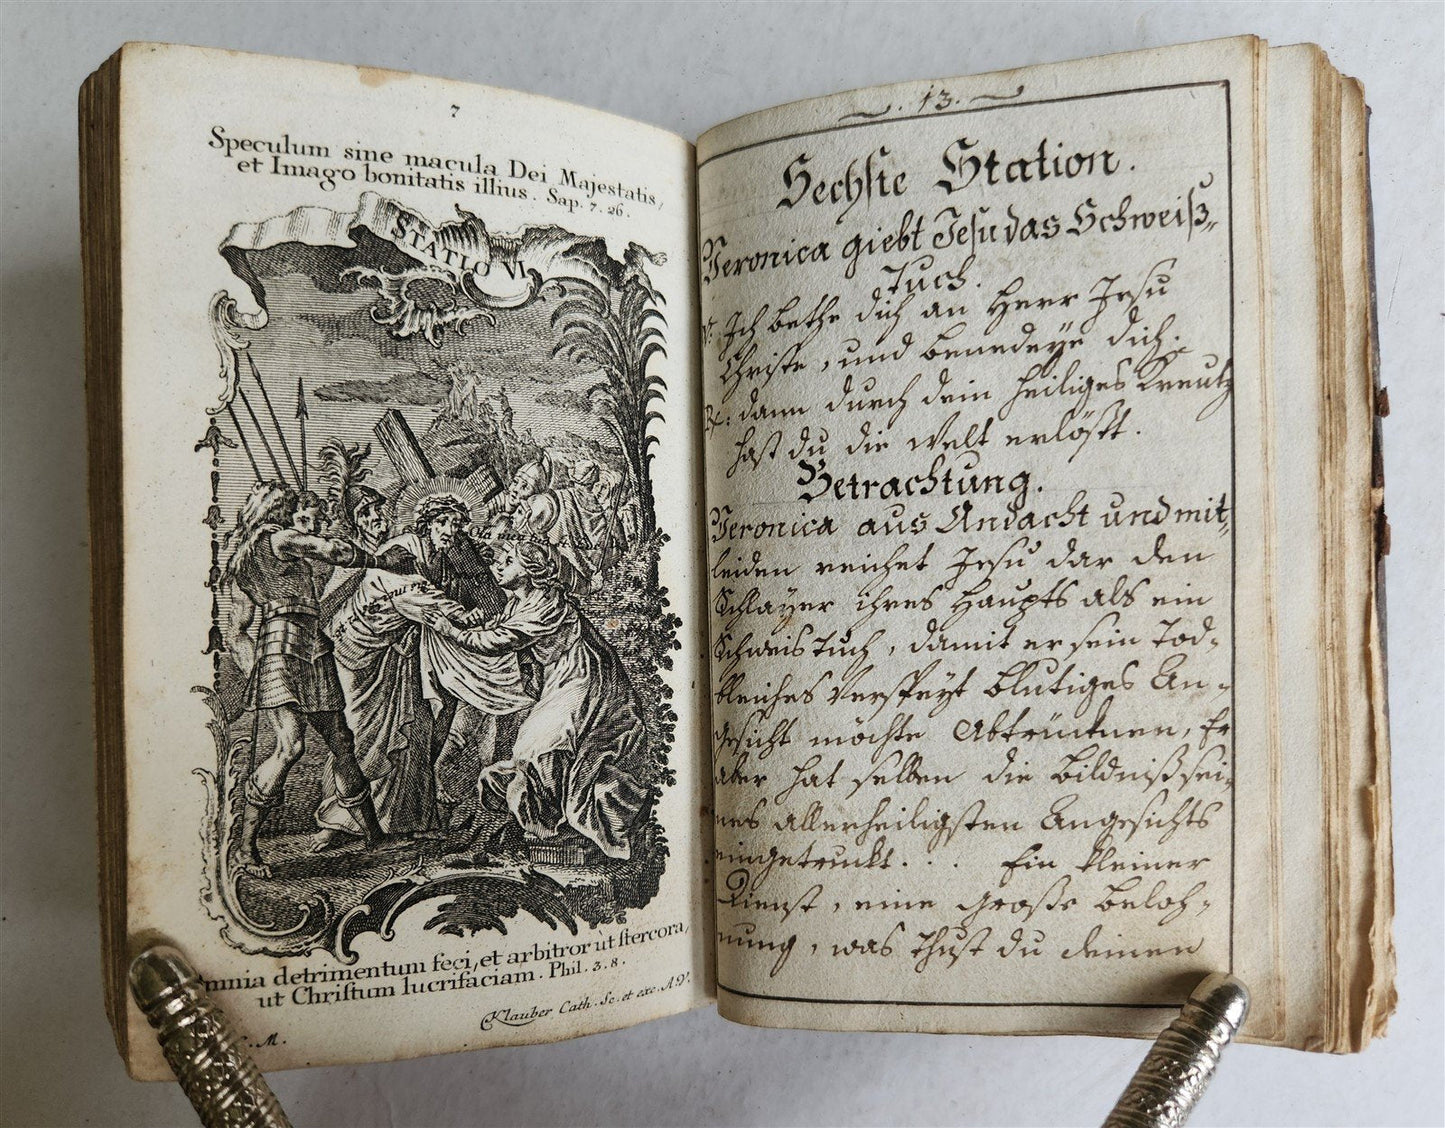 7
Speculum sine macula Dei Majestatis,
et Imago bonitatis illius. Sap. 7. 26.
STATIO VI
mnia detrimentum feci, et arbitror ùt ſtercora,
ut Chriſtum lucrifaciam. Phil. 3. 8.
Klauber Cath. Sc. et exc. A.V.
C. M.
. 13.
Sechſte Station.
Veronica giebt Jeſu das Schweiß„
Tuch.
V: Ich bethe dich an Herr Jesu
Christe, und benedeye dich.
R: dann durch dein heiliges Kreutz
hast du die Welt erlößt.
Betrachtung.
Veronica aus Andacht und mit„
leiden reichet Jesu dar den
Schlayer ihres Haupts als ein
Schweis Tuch, damit er sein Tod-
bleiches Verspeyt blutiges An-
gesicht möchte Abtrücknen, Er
aber hat selben die bildniß sei-
nes allerheiligsten Angesichts
eingetruckt. . . Ein kleiner
Dienst, eine Große beloh-
nung, was thust du deinen